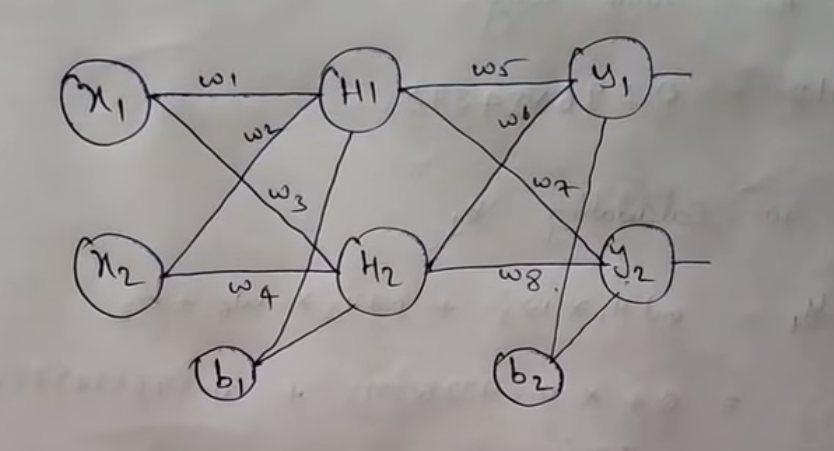 x1 w1 H1 w5 y1
w2 w6
w3 w7
x2 w4 H2 w8. y2
b1 b2